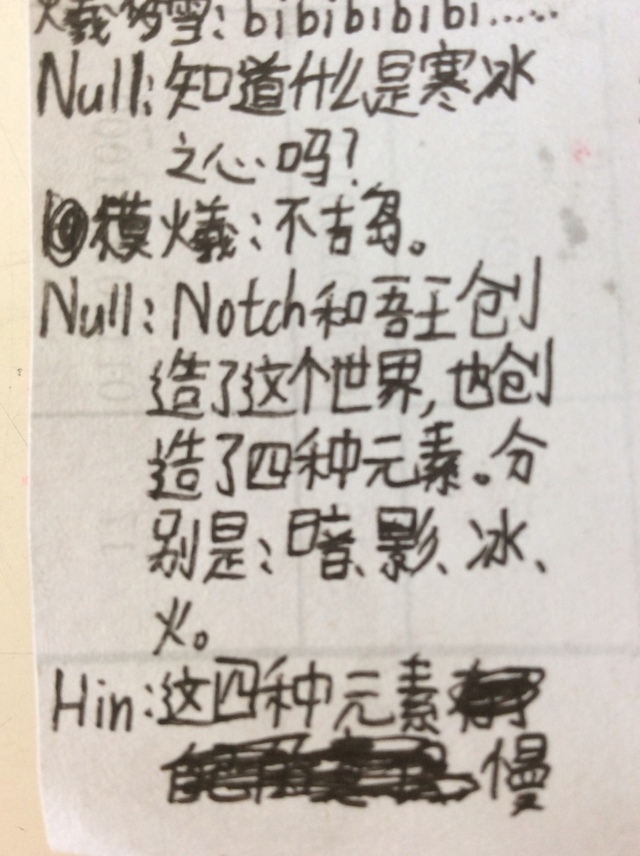 bibibibibi……
Null:知道什么是寒冰
之心吗?
火羲:不吉岛。
Null:Notch和吾王创
造了这个世界,也创
造了四种元素。分
别是:暗、影、冰、
火。
Hin:这四种元素
慢